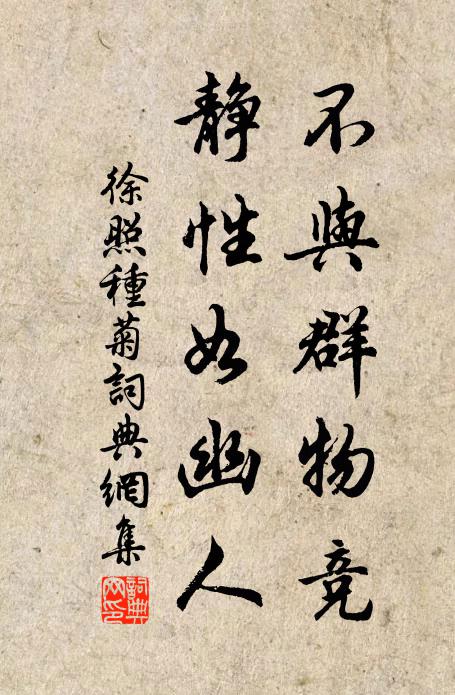 不與群物競
靜性如幽人
徐照種菊詞典網集
詞典網印